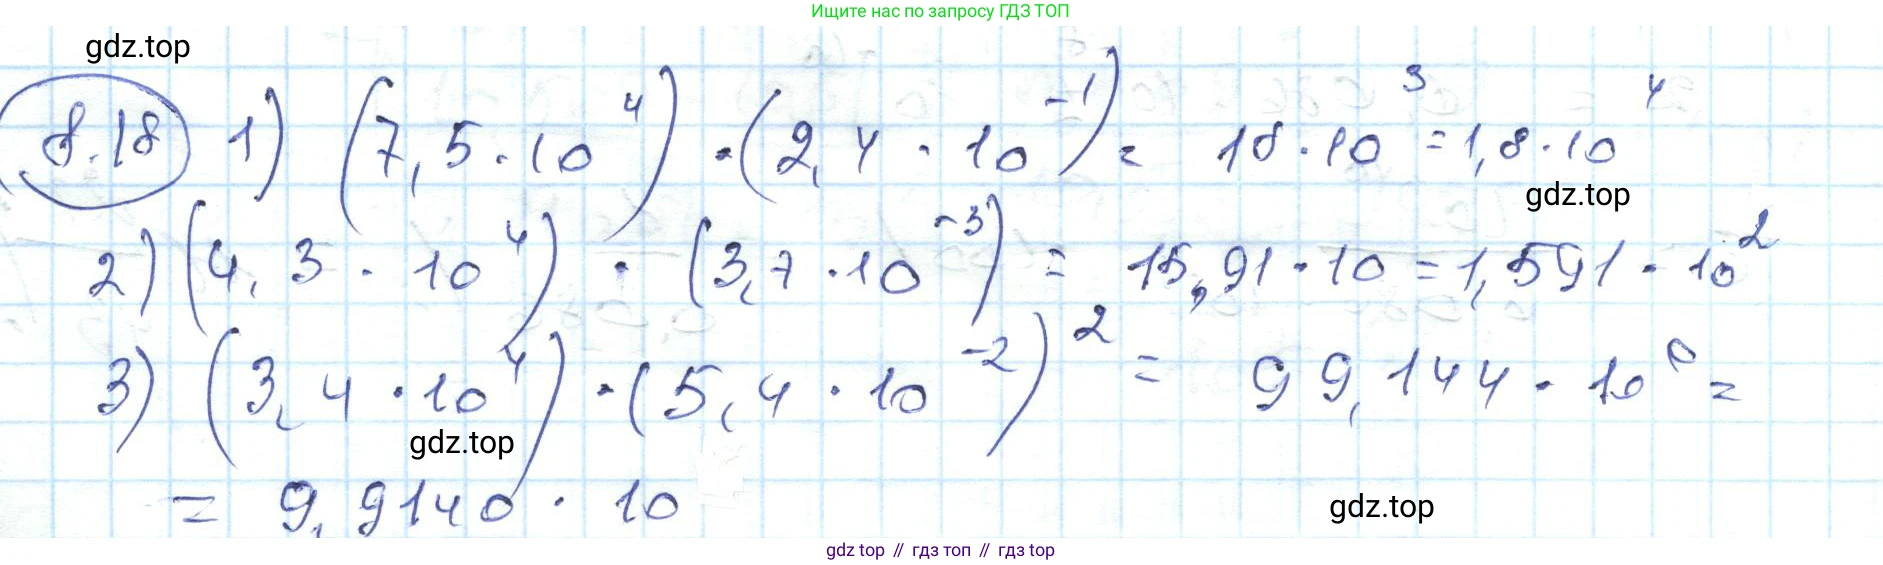 Ищите нас по запросу ГДЗ ТОП
gdz.top
8.18 1) (7,5 · 10⁴) · (2,4 · 10⁻¹) = 18 · 10³ = 1,8 · 10⁴
gdz.top
2) (4,3 · 10⁴) · (3,7 · 10⁻³) = 15,91 · 10 = 1,591 · 10²
3) (3,4 · 10⁴) · (5,4 · 10⁻²)² = 99,144 · 10⁰ =
gdz.top
= 9,9140 · 10
gdz.top
gdz top // гдз топ // gdz top